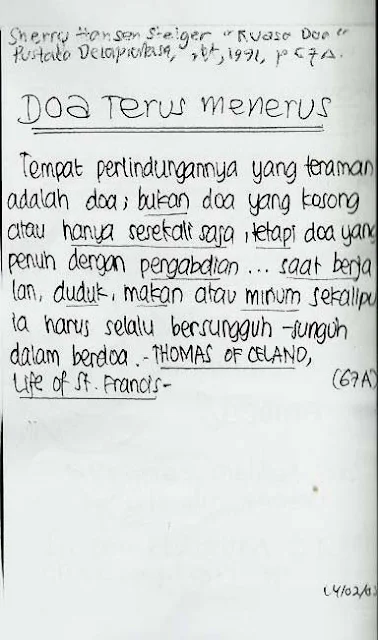 Sherry Hansen Steiger "Kuasa Doa"
Pustaka Delapratasa, , 1991, p 67A.
Doa Terus menerus
Tempat perlindungannya yang teraman
adalah doa; bukan doa yang kosong
atau hanya sesekali saja, tetapi doa yang
penuh dengan pengabdian ... saat berja
lan, duduk, makan atau minum sekalipu
ia harus selalu bersungguh-sunguh
dalam berdoa.- THOMAS OF CELAND,
Life of St. Francis-
(67A)
14/02/0